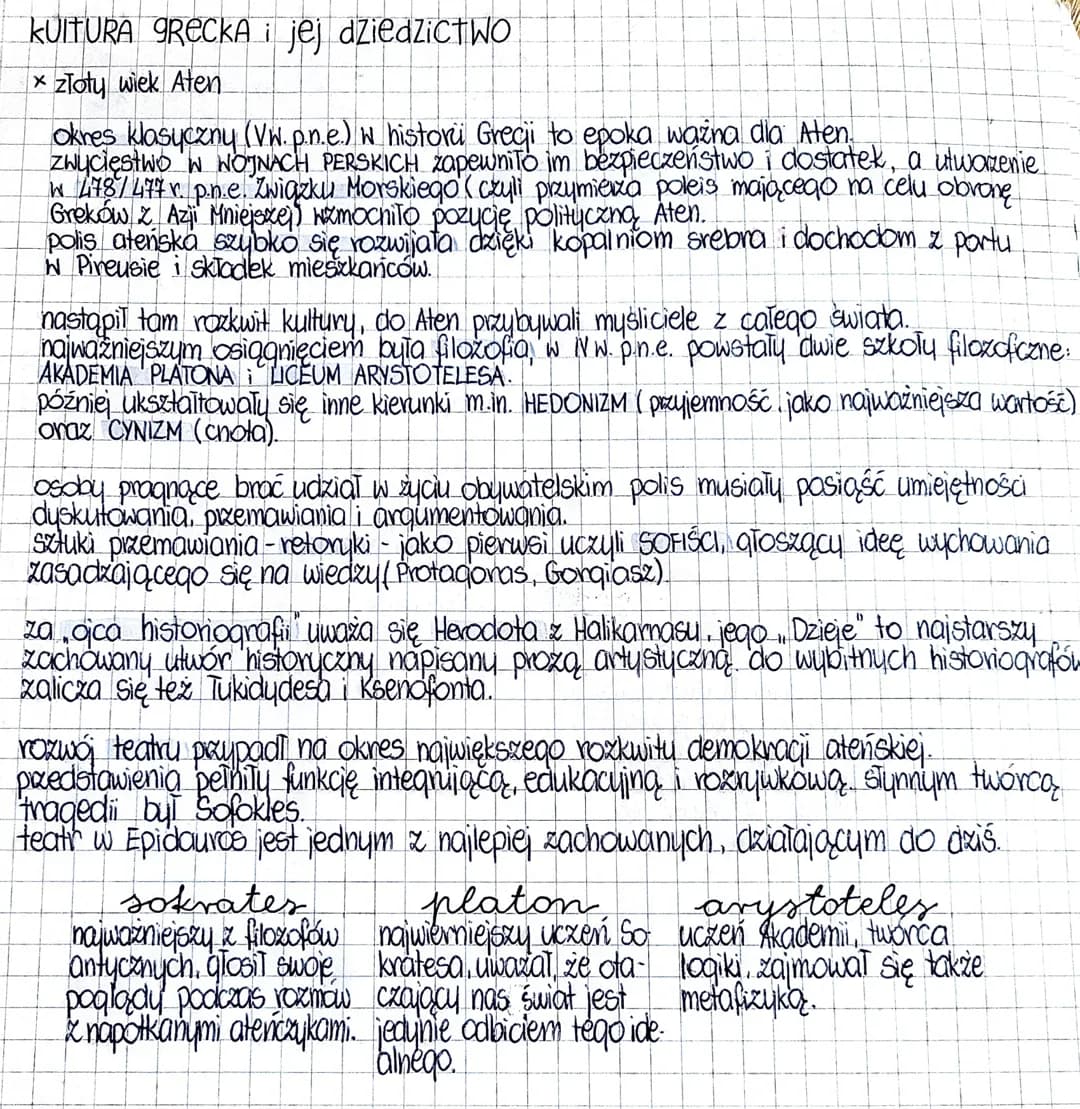 kULTURA gRECKA i jej dziedzictwo
× złoty wiek Aten
okres klasyczny (V w. p.n.e.) w historii Grecji to epoka ważna dla Aten.
zwycięstwo w WOJNACH PERSKICH zapewniło im bezpieczeństwo i dostatek, a utworzenie
w 478/477 r. p.n.e. Związku Morskiego (czyli przymierza poleis mającego na celu obronę
Greków z Azji Mniejszej) wzmochiło pozycję polityczną Aten.
polis ateńska szybko się rozwijała dzięki kopalniom srebra i dochodom z portu
w Pireusie i składek mieszkańców.
nastąpił tam rozkwit kultury, do Aten przybywali myśliciele z całego świata.
najważniejszym osiągnięciem była filozofia, w IV w. p.n.e. powstały dwie szkoły filozoficzne:
AKADEMIA PLATONA i LICEUM ARYSTOTELESA.
później ukształtowały się inne kierunki m.in. HEDONIZM (przyjemność jako najważniejsza wartość)
oraz CYNIZM (cnota).
osoby pragnące brać udział w życiu obywatelskim polis musiały posiąść umiejętności
dyskutowania, przemawiania i argumentowania.
sztuki przemawiania - retoryki - jako pierwsi uczyli SOFIŚCI, głoszący ideę wychowania
zasadzającego się na wiedzy (Protagoras, Gorgiasz).
za „ojca historiografii" uważa się Herodota z Halikarnasu, jego „Dzieje" to najstarszy
zachowany utwór historyczny napisany prozą artystyczną. do wybitnych historiografów
zalicza się też Tukidydesa i Ksenofonta.
rozwój teatru przypadł na okres największego rozkwitu demokracji ateńskiej.
przedstawienia pełniły funkcję integrującą, edukacyjną i rozrywkową. słynnym twórcą
tragedii był Sofokles.
teatr w Epidauros jest jednym z najlepiej zachowanych, działającym do dziś.
sokrates
najważniejszy z filozofów
antycznych, głosił swoje
poglądy podczas rozmów
z napotkanymi ateńczykami.
platon
najwierniejszy uczeń So-
kratesa, uważał, że ota-
czający nas świat jest
jedynie odbiciem tego ide-
alnego.
arystoteles
uczeń Akademii, twórca
logiki, zajmował się także
metafizyką.